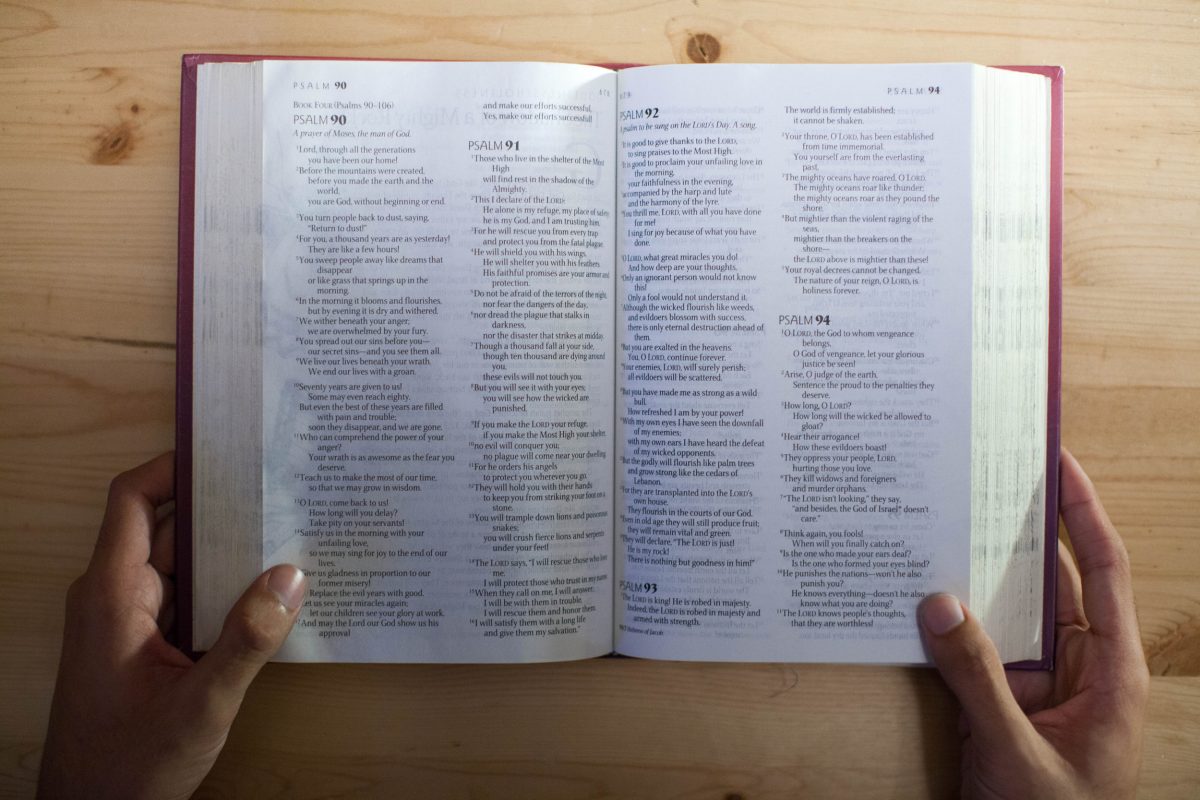 PSALM 90
BOOK FOUR (Psalms 90–106)
PSALM 90
A prayer of Moses, the man of God.
1Lord, through all the generations
you have been our home!
2Before the mountains were created,
before you made the earth and the
world,
you are God, without beginning or end.
3You turn people back to dust, saying,
"Return to dust!"
4For you, a thousand years are as yesterday!
They are like a few hours!
5You sweep people away like dreams that
disappear
or like grass that springs up in the
morning.
6In the morning it blooms and flourishes,
but by evening it is dry and withered.
7We wither beneath your anger;
we are overwhelmed by your fury.
8You spread out our sins before you—
our secret sins—and you see them all.
9We live our lives beneath your wrath.
We end our lives with a groan.
10Seventy years are given to us!
Some may even reach eighty.
But even the best of these years are filled
with pain and trouble;
soon they disappear, and we are gone.
11Who can comprehend the power of your
anger?
Your wrath is as awesome as the fear you
deserve.
12Teach us to make the most of our time,
so that we may grow in wisdom.
13O LORD, come back to us!
How long will you delay?
Take pity on your servants!
14Satisfy us in the morning with your
unfailing love,
so we may sing for joy to the end of our
lives.
us gladness in proportion to our
former misery!
Replace the evil years with good.
us see your miracles again;
let our children see your glory at work.
17And may the Lord our God show us his
approval
and make our efforts successful.
Yes, make our efforts successful!
PSALM 91
1Those who live in the shelter of the Most
High
will find rest in the shadow of the
Almighty.
2This I declare of the LORD:
He alone is my refuge, my place of safety;
he is my God, and I am trusting him.
3For he will rescue you from every trap
and protect you from the fatal plague.
4He will shield you with his wings.
He will shelter you with his feathers.
His faithful promises are your armor and
protection.
5Do not be afraid of the terrors of the night,
nor fear the dangers of the day,
6nor dread the plague that stalks in
darkness,
nor the disaster that strikes at midday.
7Though a thousand fall at your side,
though ten thousand are dying around
you,
these evils will not touch you.
8But you will see it with your eyes;
you will see how the wicked are
punished.
9If you make the LORD your refuge,
if you make the Most High your shelter,
10no evil will conquer you;
no plague will come near your dwelling.
11For he orders his angels
to protect you wherever you go.
12They will hold you with their hands
to keep you from striking your foot on a
stone.
13You will trample down lions and poisonous
snakes;
you will crush fierce lions and serpents
under your feet!
14The LORD says, "I will rescue those who love
me.
I will protect those who trust in my name.
15When they call on me, I will answer;
I will be with them in trouble.
I will rescue them and honor them.
16I will satisfy them with a long life
and give them my salvation."
PSALM 94
PSALM 92
A psalm to be sung on the LORD's Day. A song.
1It is good to give thanks to the LORD,
to sing praises to the Most High.
2It is good to proclaim your unfailing love in
the morning,
your faithfulness in the evening,
3accompanied by the harp and lute
and the harmony of the lyre.
4You thrill me, LORD, with all you have done
for me!
I sing for joy because of what you have
done.
5O LORD, what great miracles you do!
And how deep are your thoughts.
6Only an ignorant person would not know
this!
Only a fool would not understand it.
7Although the wicked flourish like weeds,
and evildoers blossom with success,
there is only eternal destruction ahead of
them.
8But you are exalted in the heavens.
You, O LORD, continue forever.
9Your enemies, LORD, will surely perish;
all evildoers will be scattered.
10But you have made me as strong as a wild
bull.
How refreshed I am by your power!
11With my own eyes I have seen the downfall
of my enemies;
with my own ears I have heard the defeat
of my wicked opponents.
12But the godly will flourish like palm trees
and grow strong like the cedars of
Lebanon.
13For they are transplanted into the LORD's
own house.
They flourish in the courts of our God.
14Even in old age they will still produce fruit;
they will remain vital and green.
15They will declare, "The LORD is just!
He is my rock!
There is nothing but goodness in him!"
PSALM 93
1The LORD is king! He is robed in majesty.
Indeed, the LORD is robed in majesty and
armed with strength.
94:7 Hebrew of Jacob.
The world is firmly established;
it cannot be shaken.
2Your throne, O LORD, has been established
from time immemorial.
You yourself are from the everlasting
past.
3The mighty oceans have roared, O LORD.
The mighty oceans roar like thunder;
the mighty oceans roar as they pound the
shore.
4But mightier than the violent raging of the
seas,
mightier than the breakers on the
shore—
the LORD above is mightier than these!
5Your royal decrees cannot be changed.
The nature of your reign, O LORD, is
holiness forever.
PSALM 94
1O LORD, the God to whom vengeance
belongs,
O God of vengeance, let your glorious
justice be seen!
2Arise, O judge of the earth.
Sentence the proud to the penalties they
deserve.
3How long, O LORD?
How long will the wicked be allowed to
gloat?
4Hear their arrogance!
How these evildoers boast!
5They oppress your people, LORD,
hurting those you love.
6They kill widows and foreigners
and murder orphans.
7"The LORD isn't looking," they say,
"and besides, the God of Israel* doesn't
care."
8Think again, you fools!
When will you finally catch on?
9Is the one who made your ears deaf?
Is the one who formed your eyes blind?
10He punishes the nations—won't he also
punish you?
He knows everything—doesn't he also
know what you are doing?
11The LORD knows people's thoughts,
that they are worthless!